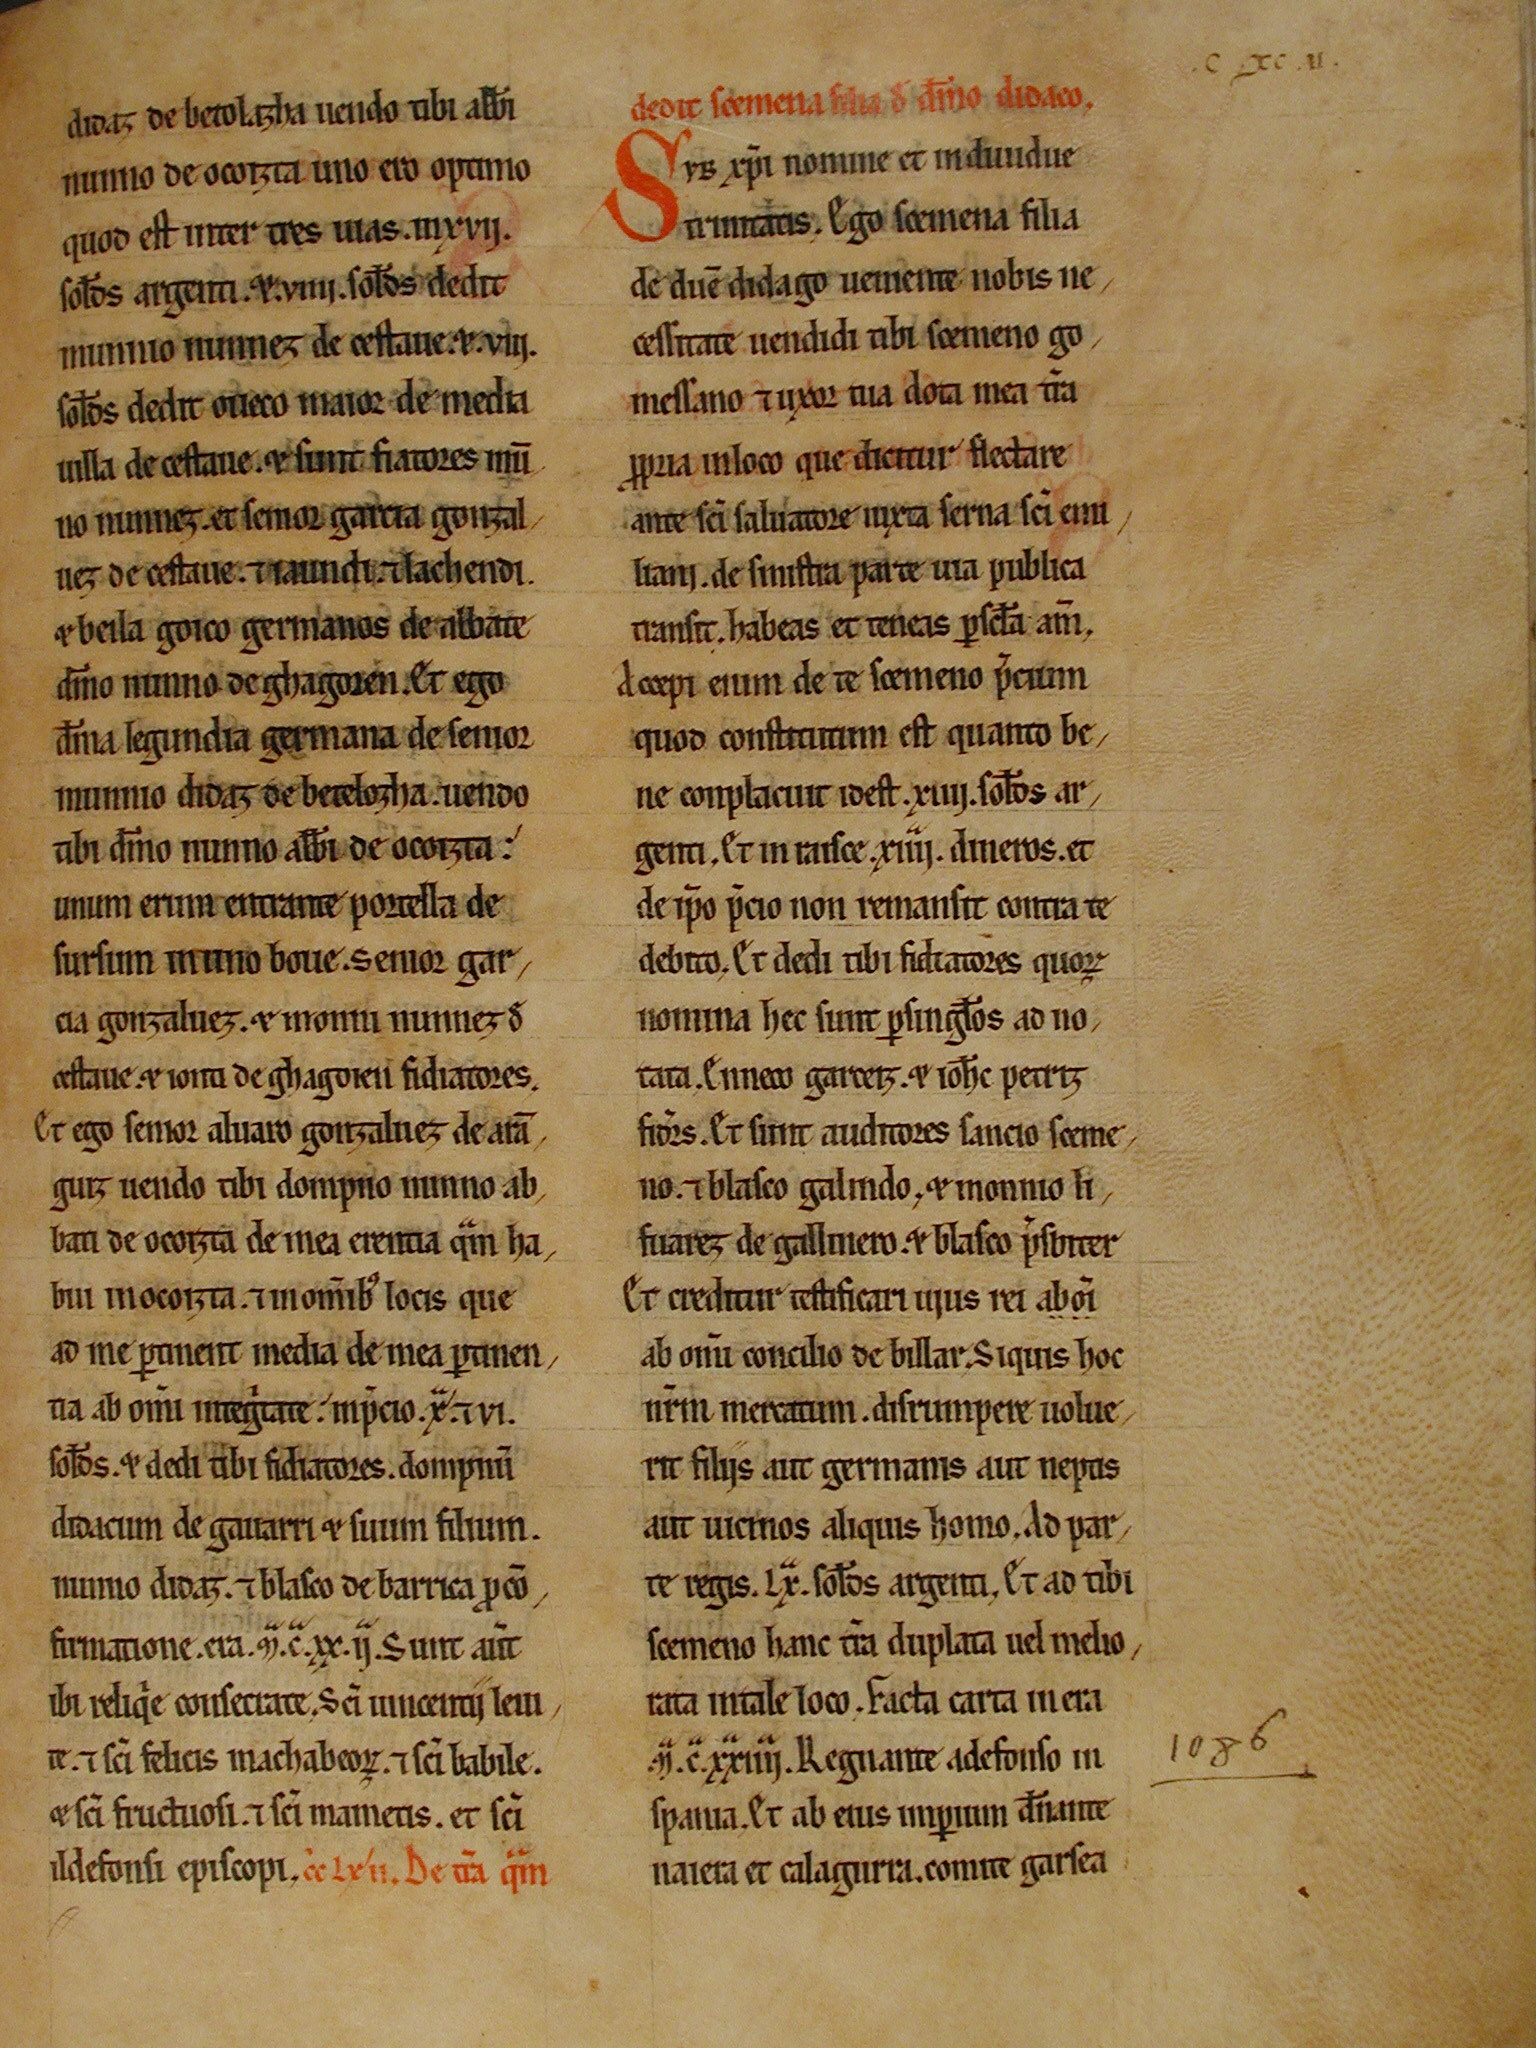 .c xc.u.
didaz de betolazha uendo tibi abbi
nunno de ocoizta uno ero optimo
quod est inter tres uias. in xvij.
solds argenti. & .viiij. solds dedit
munnio nunnez de cestaue. & .viij.
solds dedit oueco maior de media
uilla de cestaue. & sunt fiatores mū
no nunnez. et senior garcia gonzal
uez de cestaue. ⁊ iaundi. ⁊ lachendi.
& beila goico germanos de abbate
dm̄o nunno de ghagoren. Et ego
dm̄na legundia germana de senior
munnio didaz de betelozha. uendo
tibi dm̄o nunno abbi de ocoizta:
unum erum entrante portella de
sursum in uno boue. Senior gar
cia gonzaluez. & monni nunnez đ
cestaue. & ionti de ghagoien fidiatores.
Et ego senior aluaro gonzaluez de arā
guiz uendo tibi dompno nunno ab
bati de ocoizta de mea erentia qm̄ ha
bui in ocoizta. ⁊ in om̄ibꝰ locis que
ad me ꝑtinent media de mea ꝑtinen
tia ab om̄i integ̃tate: in p̃cio .x. ⁊ vi.
solds. & dedi tibi fidiatores. dompnū
didacum de gauarri & suum filium.
nunno didaz. ⁊ blasco de barrica ꝓ cō
firmatione. era .m̃.c̃.xx.ij. Sunt aūt
ibi reliq̃e consecrate. Sc̄i uincentij leui
te. ⁊ sc̄i felicis machabeoꝝ. ⁊ sc̄i babile.
& sc̄i fructuosi. ⁊ sc̄i mametis. et sc̄i
ildefonsi episcopi. cc Lx ii. De tr̄a qm̄
dedit scemena filia đ dm̄o didaco.
SVB xp̄i nomine et indiuidue
trinitatis. Ego scemena filia
de duē didago ueniente nobis ne
cessitate uendidi tibi scemeno go
messano ⁊ uxor tua dota mea tr̄a
ꝓpria in loco que dicitur flectare
ante sc̄i saluatore iuxta serna sc̄i emi
liani. de sinistra parte uia publica
transit. habeas et teneas ꝑ sc̄la am̄.
Accepi enim de te scemeno p̃cium
quod constitutum est quanto be
ne conplacuit idest .xiiij. solds ar
genti. Et in raisce .xiiij. dineros. et
de ip̄o p̃cio non remansit contra te
debito. Et dedi tibi fidiatores quoꝝ
nomina hec sunt ꝑ singłos ad no
tata. Enneco garceiz. & ioħc petriz
fiōrs. Et sunt auditores sancio sceme
no. ⁊ blasco galindo. & monnio li
fuarez de gallinero. & blasco p̃sbiter
Et creditur testificari ujus rei ab om̄i
ab om̄i concilio de billar. Siquis hoc
nr̄m mercatum. disrumpere uolue
rit filijs aut germanis aut neptis
aut uicinos aliquis homo. Ad par
te regis. Lx. solds argenti. Et ad tibi
scemeno hanc tr̄a duplata uel melio
rata in tale loco. Facta carta in era
.m̃.c̃.xxiiij. Regnante adefonso in
spania. Et ab eius inꝑium dn̄ante
naiera et calagurra. comite garsea
1086